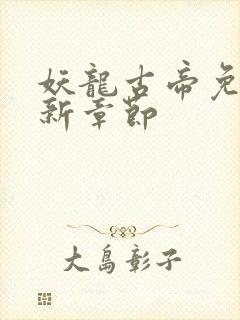 妖龍古帝免
新章節
大島彰子